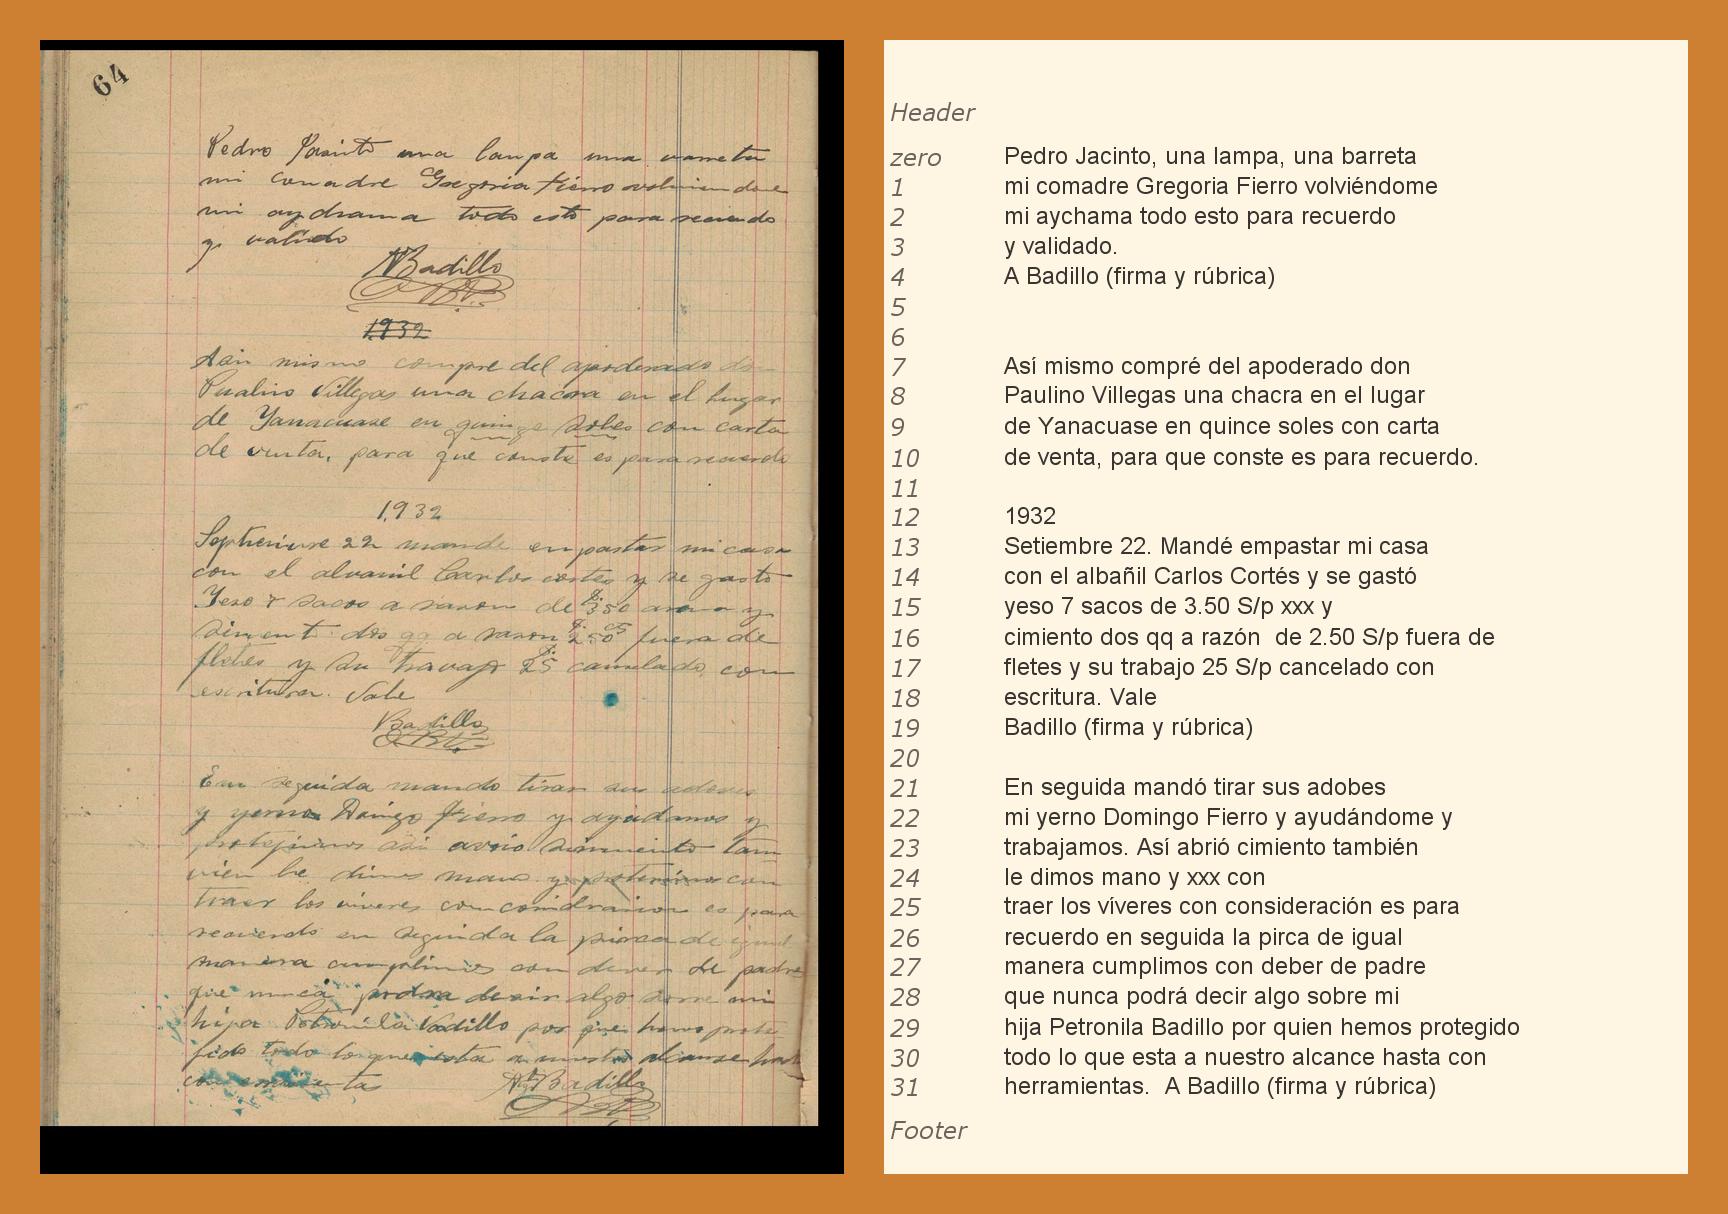 64
Pedro una lampa una varreta
mi comadre Gregoria Fierro volviendome
mi aydrama todo esto para recuerdo
y valido
A Badillo
1932
Asin mismo compre del apoderado don
Pualino Villegas una chacra en el lugar
de Yanacuase en quinze soles con carta
de venta, para que conste es para recuerdo
1932
Septienvre 22 mande enpastar mi casa
con el alvanil Carlos cortes y se gasto
Yeso 7 sacos a razon de $.350 y
siment dos qq a razon $.250 fuera de
fletes y su travajo $.25 canselado con
escritura. Vale
Badillo
Em seguida mando tirar sus adoves
y yerno Fierro y ayudamos y
asi avrio simiento tam
vien le dimos mano y con
traer los viveres con es para
recuerdo en seguida la pirca de igual
manera cumplimos con dever de padre
que nunca podra desir algo sovre mi
hija Petronila Vadillo por quien hemos prote
jido todo lo que esta a nuestro alcanse hasta
con
A Badillo
Header
zero Pedro Jacinto, una lampa, una barreta
1 mi comadre Gregoria Fierro volviéndome
2 mi aychama todo esto para recuerdo
3 y validado.
4 A Badillo (firma y rúbrica)
5
6
7 Así mismo compré del apoderado don
8 Paulino Villegas una chacra en el lugar
9 de Yanacuase en quince soles con carta
10 de venta, para que conste es para recuerdo.
11
12 1932
13 Setiembre 22. Mandé empastar mi casa
14 con el albañil Carlos Cortés y se gastó
15 yeso 7 sacos de 3.50 S/p xxx y
16 cimiento dos qq a razón de 2.50 S/p fuera de
17 fletes y su trabajo 25 S/p cancelado con
18 escritura. Vale
19 Badillo (firma y rúbrica)
20
21 En seguida mandó tirar sus adobes
22 mi yerno Domingo Fierro y ayudándome y
23 trabajamos. Así abrió cimiento también
24 le dimos mano y xxx con
25 traer los víveres con consideración es para
26 recuerdo en seguida la pirca de igual
27 manera cumplimos con deber de padre
28 que nunca podrá decir algo sobre mi
29 hija Petronila Badillo por quien hemos protegido
30 todo lo que esta a nuestro alcance hasta con
31 herramientas. A Badillo (firma y rúbrica)
Footer